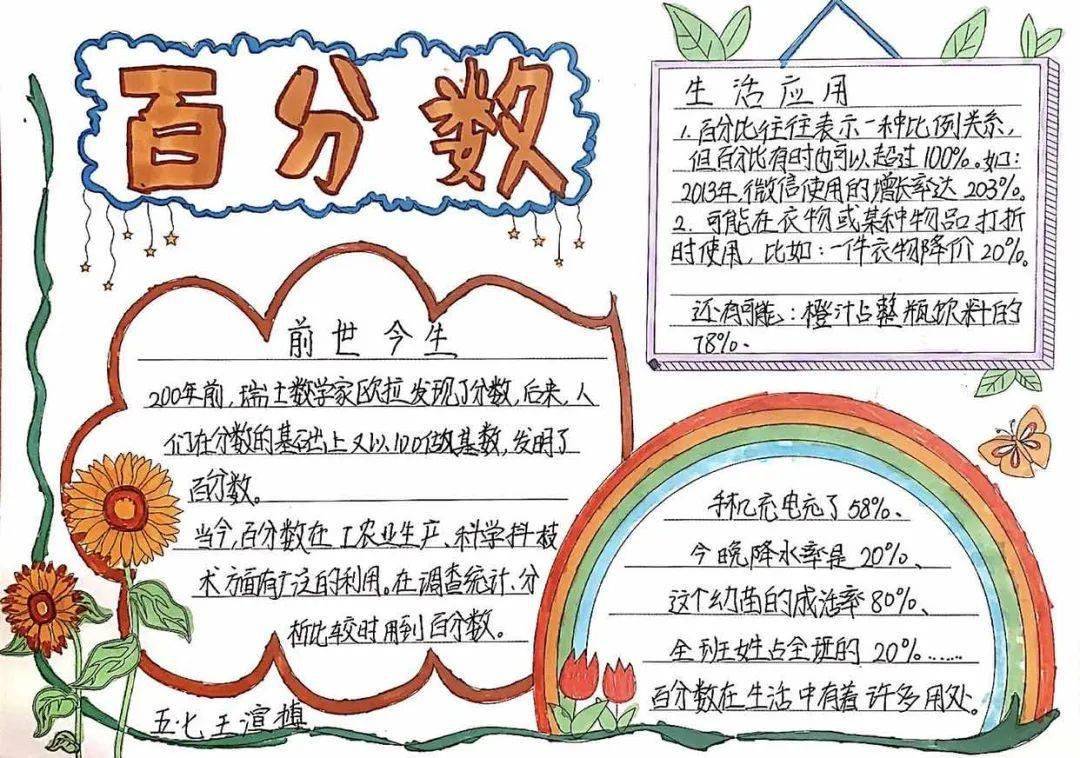 百分数
前世今生
200年前,瑞士数学家欧拉发现了分数,后来,人
们在分数的基础上又以100做基数,发明了
百分数。
当今,百分数在工农业生产、科学抖技
术方面有广泛的利用。在调查统计、分
析比较时用到百分数。
五·七 王渲博
生活应用
1. 百分比往往表示一种比例关系,
但百分比有时也可以超过100%。如:
2013年,微信使用的增长率达203%。
2. 可能在衣物或某种物品打折
时使用,比如:一件衣物降价20%。
还有可能:橙汁占整瓶饮料的
78%、
手机充电充了58%、
今晚降水率是20%、
这个幼苗的成活率80%、
全班姓占全班的20%……
百分数在生活中有着许多用处。